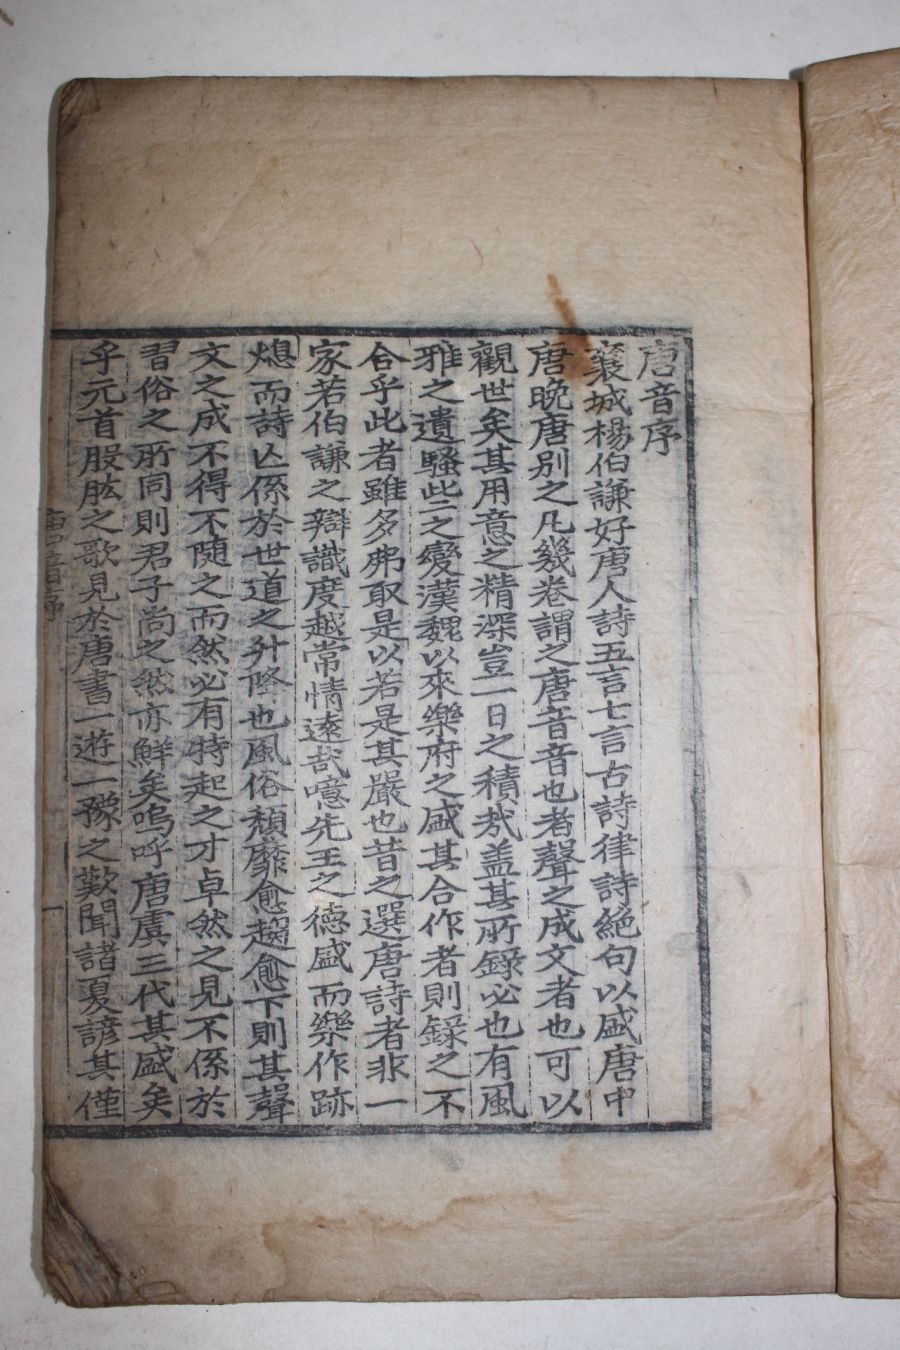 唐音序
襄城楊伯謙好唐人詩五言七言古詩律詩絶句以盛唐中
唐晩唐别之凡幾卷謂之唐音音也者聲之成文者也可以
觀世矣其用意之精深豈一日之積㦲盖其所錄必也有風
雅之遺騷些之變漢魏以來樂府之盛其合作者則録之不
合乎此者雖多弗取是以若是其嚴也昔之選唐詩者非一
家若伯謙之辯識度越常情遠哉噫先王之德盛而樂作跡
熄而詩亾係於世道之升降也風俗頹靡愈趨愈下則其聲
文之成不得不随之而然必有特起之才卓然之見不係於
習俗之所同則君子尚之然亦鮮矣嗚呼唐虞三代其盛矣
乎元首股肱之歌見於虞書一遊一豫之歎聞諸夏諺其僅
唐音序
一